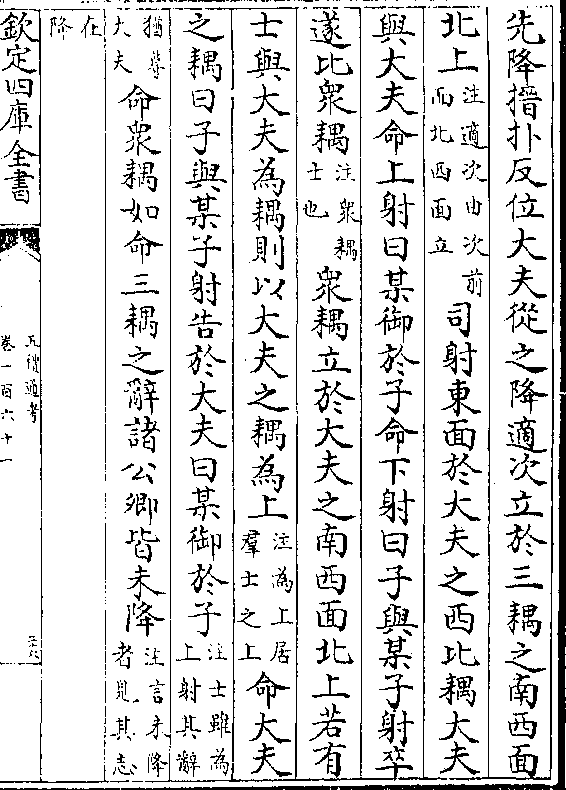 先降搢扑反位大夫從之降適次立於三耦之南西面
北上注適次由次前而北西面立司射東面於大夫之西比耦大夫
與大夫命上射曰某御於子命下射曰子與某子射卒
遂比衆耦注衆耦士也衆耦立於大夫之南西面北上若有
士與大夫為耦則以大夫之耦為上注為上居羣士之上命大夫
之耦曰子與某子射告於大夫曰某御於子注士雖為上射其辭
猶尊大夫命衆耦如命三耦之辭諸公卿皆未降注言未降者見其志
在降
欽定四庫全書
五禮通考
卷一百六十一